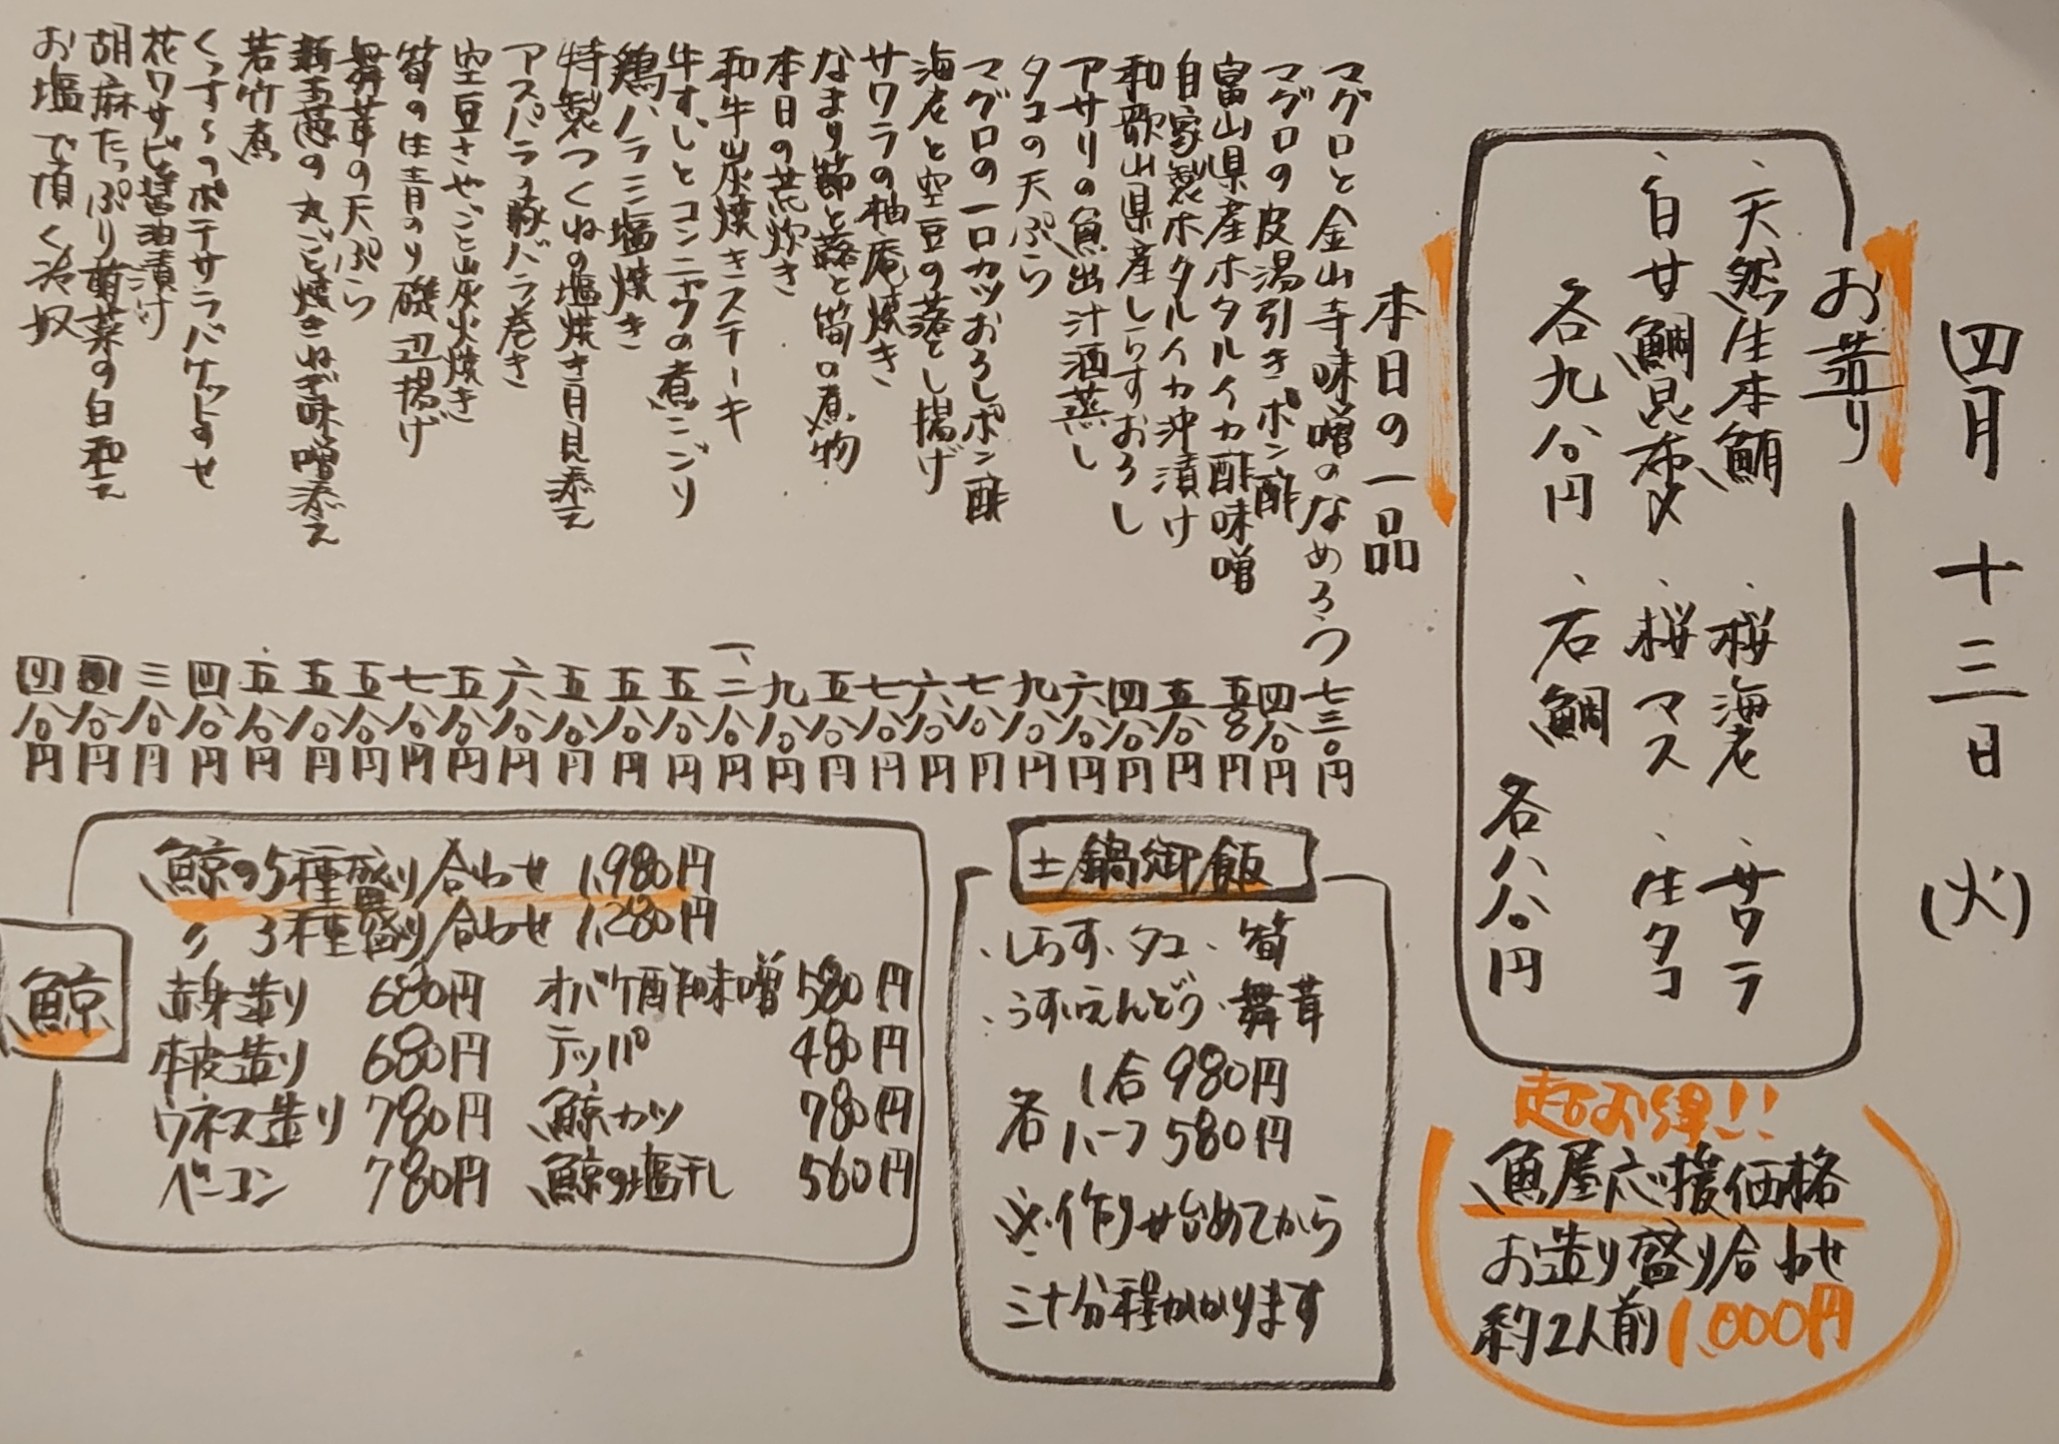 四月十三日(火)
お造り
・天然生本鮪
・桜海老
・サワラ
・白甘鯛昆布〆
・桜マス
・生タコ
各九八〇円
・石鯛
各八八〇円
超お得!!
魚屋応援価格
お造り盛り合わせ
約2人前1,000円
本日の一品
マグロと金山寺味噌のなめろう 七三〇円
マグロの皮湯引きポン酢 四八〇円
富山県産ホタルイカ酢味噌 五八〇円
自家製ホタルイカ沖漬け 五八〇円
和歌山県産しらすおろし 四八〇円
アサリの魚出汁酒蒸し 六八〇円
タコの天ぷら 九八〇円
マグロの一口カツおろしポン酢 七八〇円
海老と空豆の落とし揚げ 六八〇円
サワラの柚庵焼き 七八〇円
なまり節と蕗と筍の煮物 五八〇円
本日の荒炊き 九八〇円
和牛炭焼きステーキ 一、二八〇円
牛すじとコンニャクの煮こごり 五八〇円
鶏ハラミ塩焼き 五八〇円
特製つくねの塩焼き月見添え 五八〇円
アスパラ豚バラ巻き 六八〇円
空豆さやごと炭火焼き 五八〇円
筍の生青のり磯辺揚げ 七八〇円
舞茸の天ぷら 五八〇円
新玉葱の丸ごと焼きねぎ味噌添え 五八〇円
若竹煮 五八〇円
くずし のポテサラバケットのせ 四八〇円
花ワサビ醤油漬け 三八〇円
胡麻たっぷり菊菜の白和え 四八〇円
お塩で頂く冷奴 四八〇円
土鍋御飯
・しらす・タコ・筍
・うすいえんどう・舞茸
各 1合 980円
ハーフ 580円
※作り始めてから
三十分程かかります
鯨
鯨の5種盛り合わせ 1,980円
〃 3種盛り合わせ 1,280円
赤身造り 680円 オバケ酢味噌 580円
本皮造り 680円 テッパ 480円
ウネス造り 780円 鯨カツ 780円
ベーコン 780円 鯨の塩干し 560円